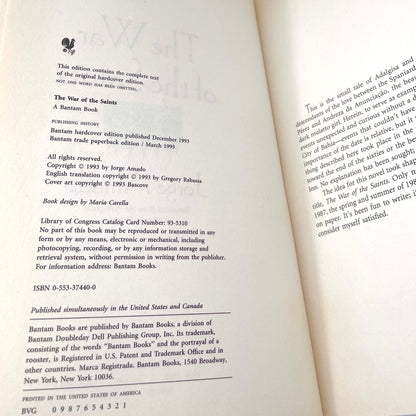 This edition contains the complete text
of the original hardcover edition.
NOT ONE WORD HAS BEEN OMITTED.
The War of the Saints
A Bantam Book
PUBLISHING HISTORY
Bantam hardcover edition published December 1993
Bantam trade paperback edition / March 1995
All rights reserved.
Copyright © 1993 by Jorge Amado
English translation copyright © 1993 by Gregory Rabassa
Cover art copyright © 1993 Bascove
Book design by Maria Carella
Library of Congress Catalog Card Number: 93-5310
No part of this book may be reproduced or transmitted in any
form or by any means, electronic or mechanical, including
photocopying, recording, or by any information storage and
retrieval system, without permission in writing from the publisher.
For information address: Bantam Books.
ISBN 0-553-37440-0
Published simultaneously in the United States and Canada
Bantam Books are published by Bantam Books, a division of
Bantam Doubleday Dell Publishing Group, Inc. Its trademark,
consisting of the words "Bantam Books" and the portrayal of a
rooster, is Registered in U.S. Patent and Trademark Office and in
other countries. Marca Registrada. Bantam Books, 1540 Broadway,
New York, New York 10036.
PRINTED IN THE UNITED STATES OF AMERICA
BVG 0 9 8 7 6 5 4 3 2 1
This is the small tale of Adalgisa and
descendants of the love between the Spaniard
Pérez and Andreza da Anunciação, the
dark mulatto girl. Herein, to serve as example
events unexpected and curious without a
City of Bahia—events that couldn't have
importance of the date is relative, but it
thing described here took place in the
toward the end of the sixties or the be-
less. No explanation has been sought;
The idea for this novel took shape
title, The War of the Saints. Only n
1987, the spring and summer of 198
on paper. It's been fun to write; i
consider myself satisfied.